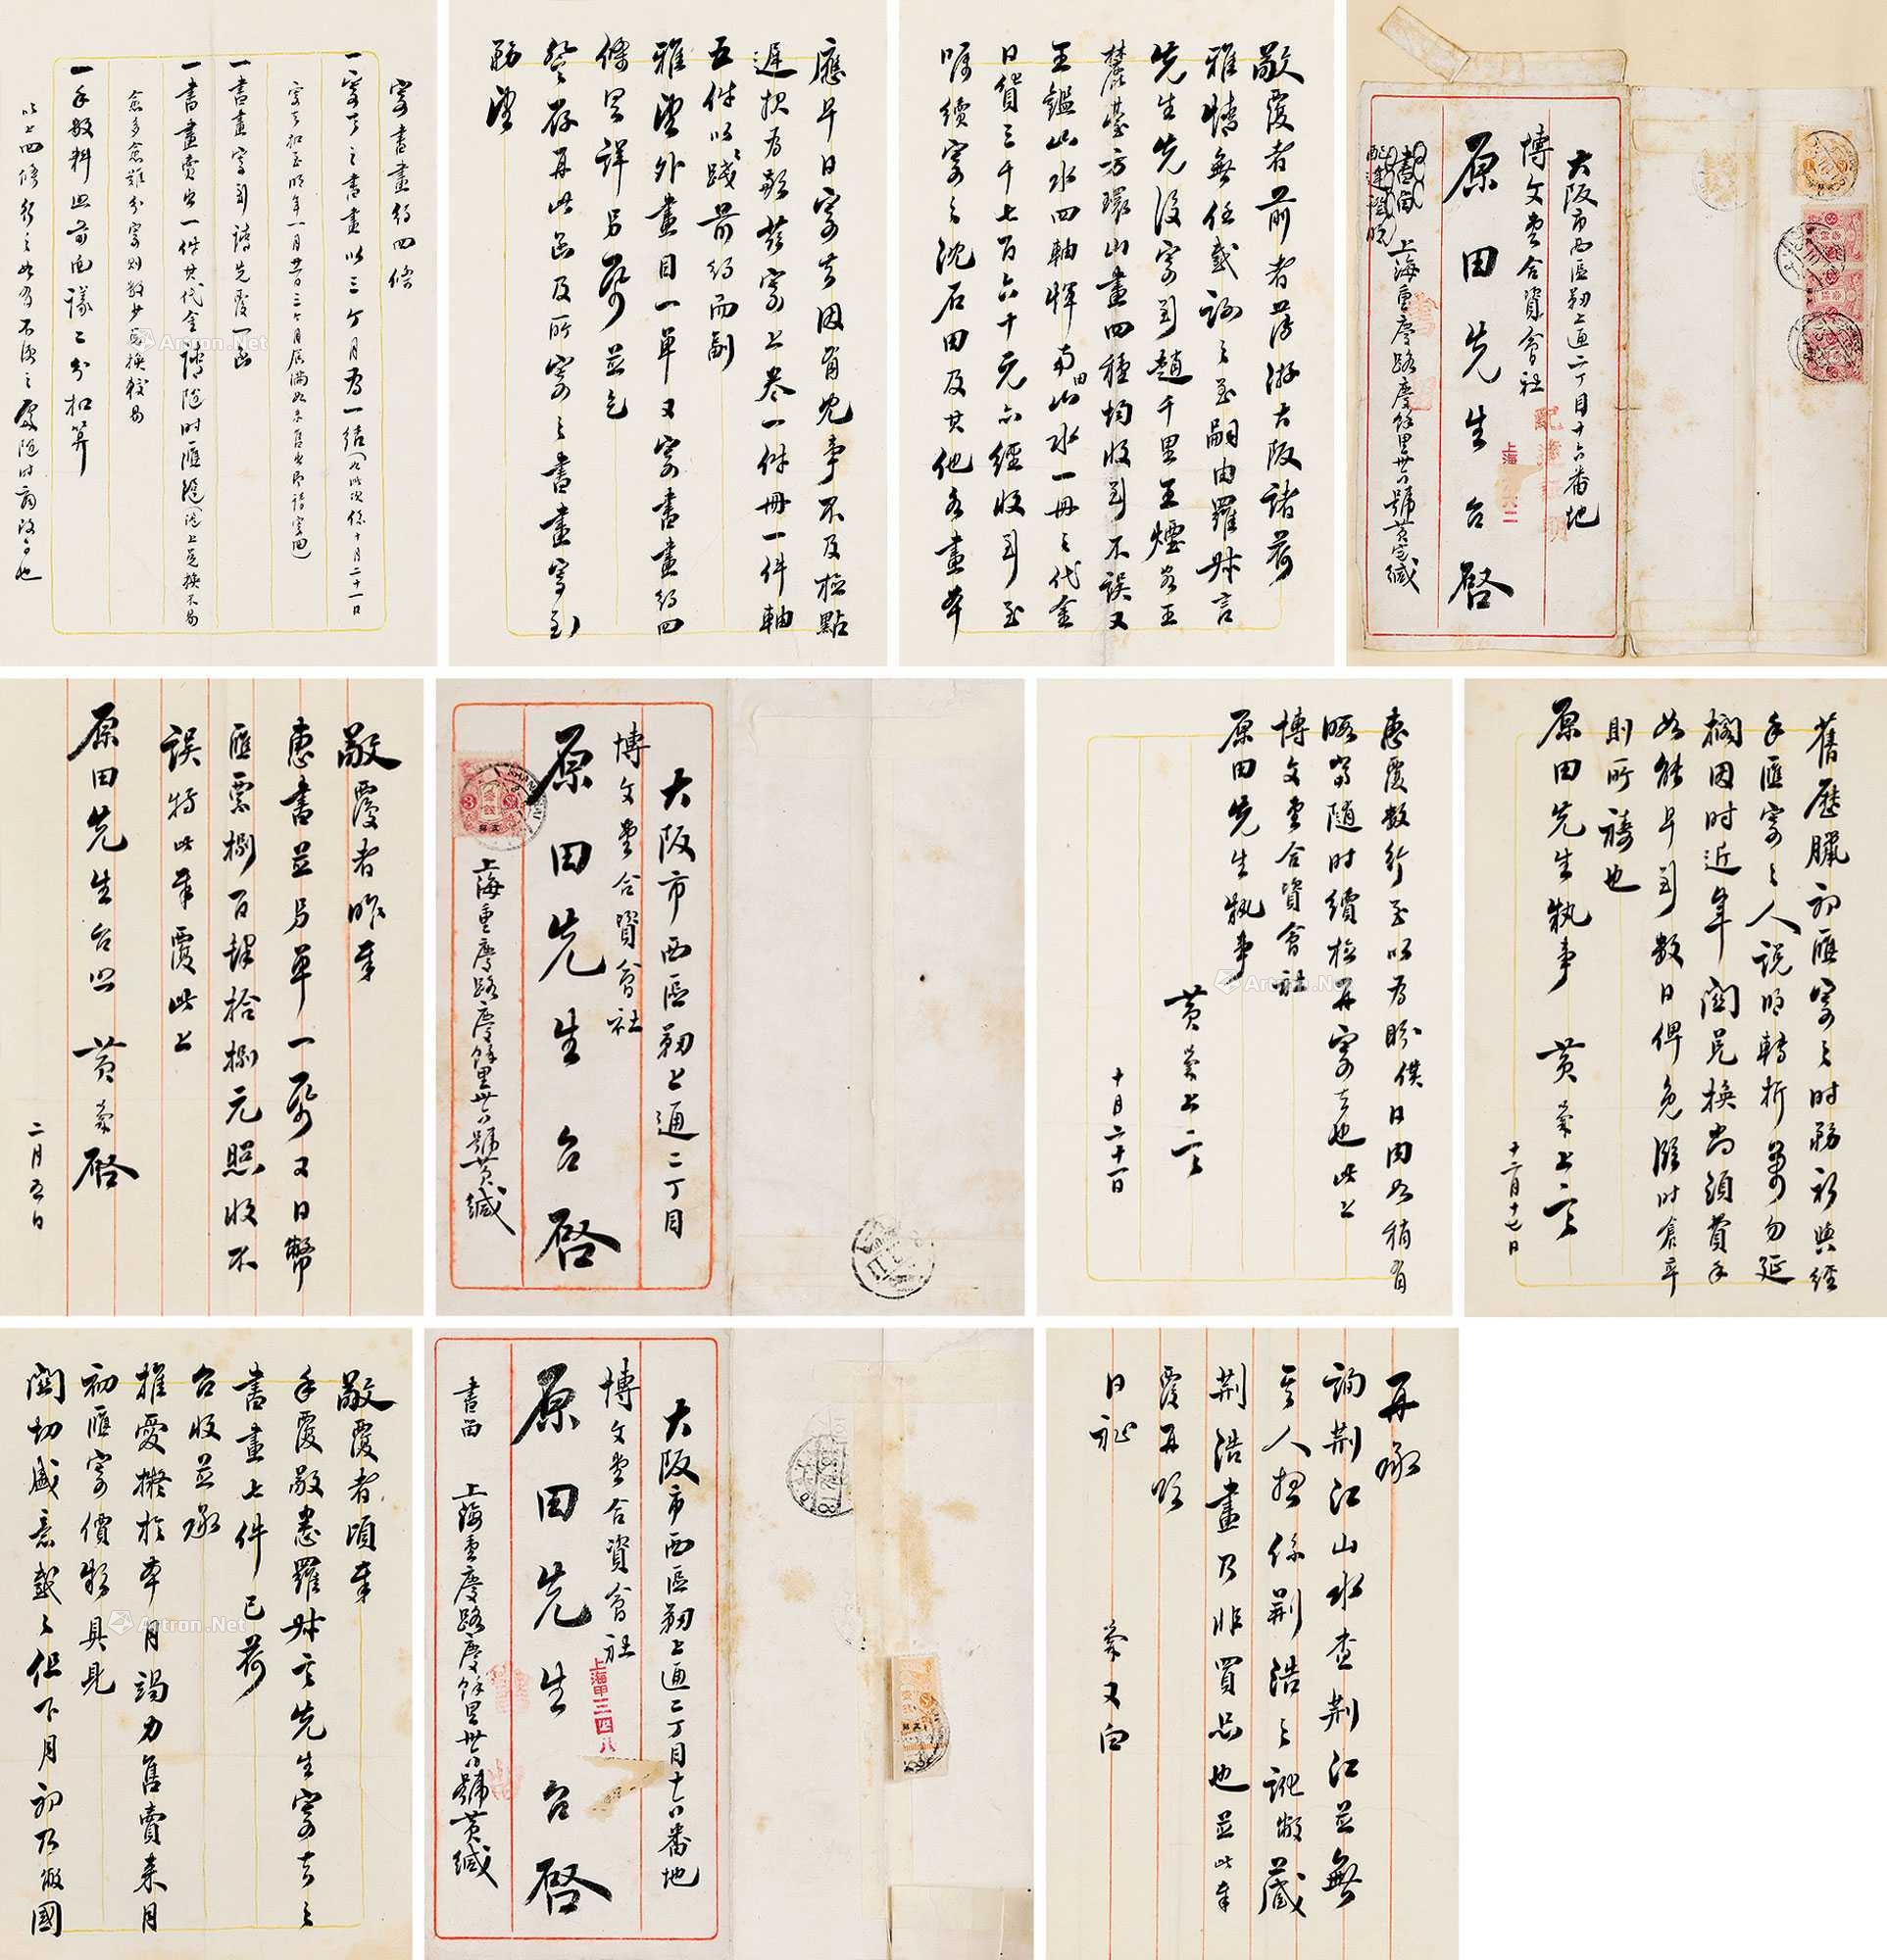 大阪市西區靭上通二丁目十六番地
博文堂合資會社
原田先生台啓
書留
上海重慶路慶餘里卅六號黃宅緘
敬覆者前者薄游大阪諸荷
雅情無任感謝之至嗣由羅叔言
先生先後寄到趙千里王煙客王
麓臺方環山畫四種均收到不誤又
王鑑山水四軸惲南田山水一冊之代金
日貨三千七百六十元亦經收到至
囑續寄之沈石田及其他各畫本
應早日寄去因有他事不及檢點
遲報為歉茲寄上卷一件冊一件軸
五件以踐前約而副
雅望外畫目一單又寄書畫約四
條另詳另紙並乞
詧存再此函及所寄之書畫寄到
務望
寄書畫約四條
一寄下之書畫以三ケ月為一結
一書畫寄到請先覆一函
一書畫賣出一件其代金請隨時匯滬
一手數料照前面議二分扣算
惠覆數行至以為盼僕日內如稍有
暇當隨時續檢再寄去也此上
博文堂合資會社
原田先生執事
黃榮上言
十月二十一日
大阪市西區靭上通二丁目
博文堂合資會社
原田先生台啓
上海重慶路慶餘里卅六號黃緘
敬覆者昨奉
惠書並另單一紙又日幣
匯票捌百肆拾捌元照收不
誤特此奉覆此上
原田先生台照
黃榮啓
二月五日
大阪市西區靭上通二丁目十六番地
博文堂合資會社
原田先生台啓
書留
上海重慶路慶餘里卅六號黃緘
上海甲三四八
敬覆者頃奉
手覆敬悉羅叔言先生寄去之
書畫七件已荷
台收並承
推愛擬於本月竭力售賣來月
初匯寄價款具見
關切盛意感感但下月初乃敝國
舊歷臘初匯寄之時務祈與經
手匯寄之人說明轉折萬勿延
擱因時近年關兌換尚須費手
如能早到數日俾免臨時倉卒
則所禱也
原田先生執事
黃榮上言
十二月十七日
再承
詢荆江山水查荆江並無
其人想係荆浩之訛敝藏
荆浩畫乃非買品也並此奉
覆再頌
日祉
榮又白
Artron.Net
Artron.Net
Artron.Net